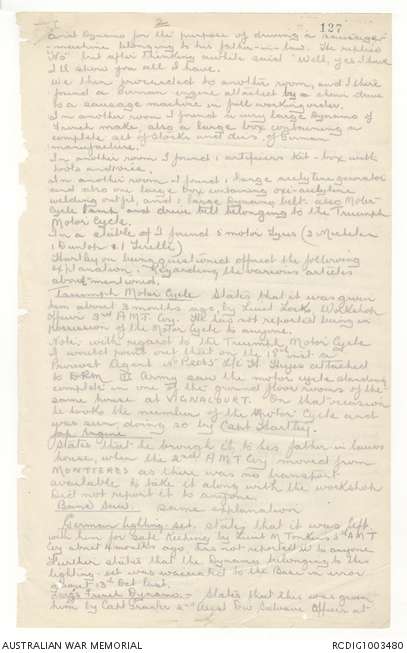 2
127
and Dynamo for the purpose of driving a sausage
machine belonging to his father-in-law. He replied
"No" but after thinking awhile said "Well, yes I have
I'll show you all I have.
We then proceeded to another room, and I there
found a German engine attached by a chain drive
to a sausage machine in full working order.
In another room I found a very large Dynamo of
French make, also a large box containing a
complete set of Stocks and dies, of German
manufacture.
In another room I found 1 artificers kit-box with
tools and vice.
In another room I found 1 large acetylene generator
and also one large box containing oxi-acetylene
welding outfit, and 1 large Dynamo belt. also Motor
Cycle lamp and drive belt belonging to the Triumph
Motor Cycle.
In a stable I found 5 motor tyres (3 Michelin
1 Dunlop & 1 Pirelli)
Hartley on being questioned offered the following
explanation:- Regarding the various articles
above mentioned.
Triumph Motor Cycle States that it was given
him about 3 months ago, by Lieut Locks Workshop
Officer 3rd A.M.T. Coy. He has not reported being in
possession of the Motor Cycle to anyone.
Note:- with regard to the Triumph Motor Cycle
I would point out that on the 18th inst a
Provost Agent attached
to Army saw the motor cycle standing
complete in one of the ground floor rooms of the
same house at VIGNACOURT. On that occasion
he took the number of the Motor Cycle and
was seen doing so by Capt Hartley.
Engine
States that he brought it to his father in laws
house, when the 2nd A M T Coy moved from
MONTIERES as there was no transport
available to take it along with the workshop
Did not report it to anyone.
Band Saw. Same explanation
German lighting set. states that it was left
with him for safe keeping by Lieut A M T
Coy about 4 months ago. Has not reported it to anyone
Further states that the Dynamo belonging to this
lighting set was evacuated to the Base in error
about 13th Oct last.
Large French Dynamo.- States that this was given
him by Capt 2nd Aust Div Salvage Officer at
AUSTRALIAN WAR MEMORIAL
RCDIG1003480